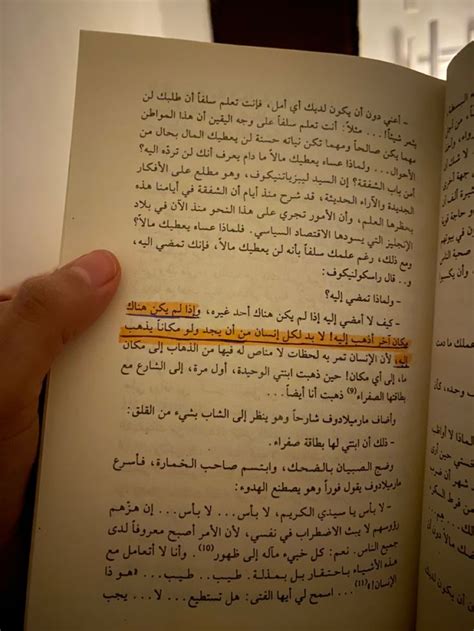 - أعني دون أن يكون لديك أي أمل، فإنت تعلم سلفاً أن طلبك لن
يثمر شيئاً!... مثلاً: أنت تعلم سلفاً على وجه اليقين أن هذا المواطن
مهما يكن صالحاً ومهما تكن نياته حسنة لن يعطيك المال بحال من
الأحوال... ولماذا عساه يعطيك مالاً ما دام يعرف أنك لن تردّه إليه؟
أمن باب الشفقة؟ إن السيد ليبزياتنيكوف، وهو مطلع على الأفكار
الجديدة والآراء الحديثة، قد شرح منذ أيام أن الشفقة في أيامنا هذه
يحظرها العلم، وأن الأمور تجري على هذا النحو منذ الآن في بلاد
الإنجليز التي يسودها الاقتصاد السياسي. فلماذا عساه يعطيك مالاً؟
ومع ذلك، رغم علمك سلفاً بأنه لن يعطيك مالاً، فإنك تمضي إليه،
و.. قال راسكولنيكوف:
- ولماذا تمضي إليه؟
- كيف لا أمضي إليه إذا لم يكن هناك أحد غيره، وإذا لم يكن هناك
مكان آخر أذهب إليه! لا بد لكل إنسان من أن يجد ولو مكاناً يذهب
إليه، لأن الإنسان تمر به لحظات لا مناص له فيها من الذهاب إلى مكان
ما، إلى أي مكان! حين ذهبت ابنتي الوحيدة، أول مرة، إلى الشارع مع
بطاقتها الصفراء(9) ذهبت أنا أيضاً...
وأضاف مارميلادوف شارحاً وهو ينظر إلى الشاب بشيء من القلق:
- ذلك أن ابنتي لها بطاقة صفراء.
وضج الصبيان بالضحك، وابتسم صاحب الخمارة، فأسرع
مارميلادوف يقول فوراً وهو يصطنع الهدوء:
- لا بأس يا سيدي الكريم، لا بأس... لا بأس. إن هزّهم
رؤوسهم لا يبث الاضطراب في نفسي، لأن الأمر أصبح معروفاً لدى
جميع الناس. نعم: كل خبيء مآله إلى ظهور(10). وأنا لا أتعامل مع
هذه الأشياء باحتقار بل بمذلة. طيب.. طيب... «هو ذا
الإنسان!»(11)... اسمح لي أيها الفتى: هل تستطيع... لا... يجب